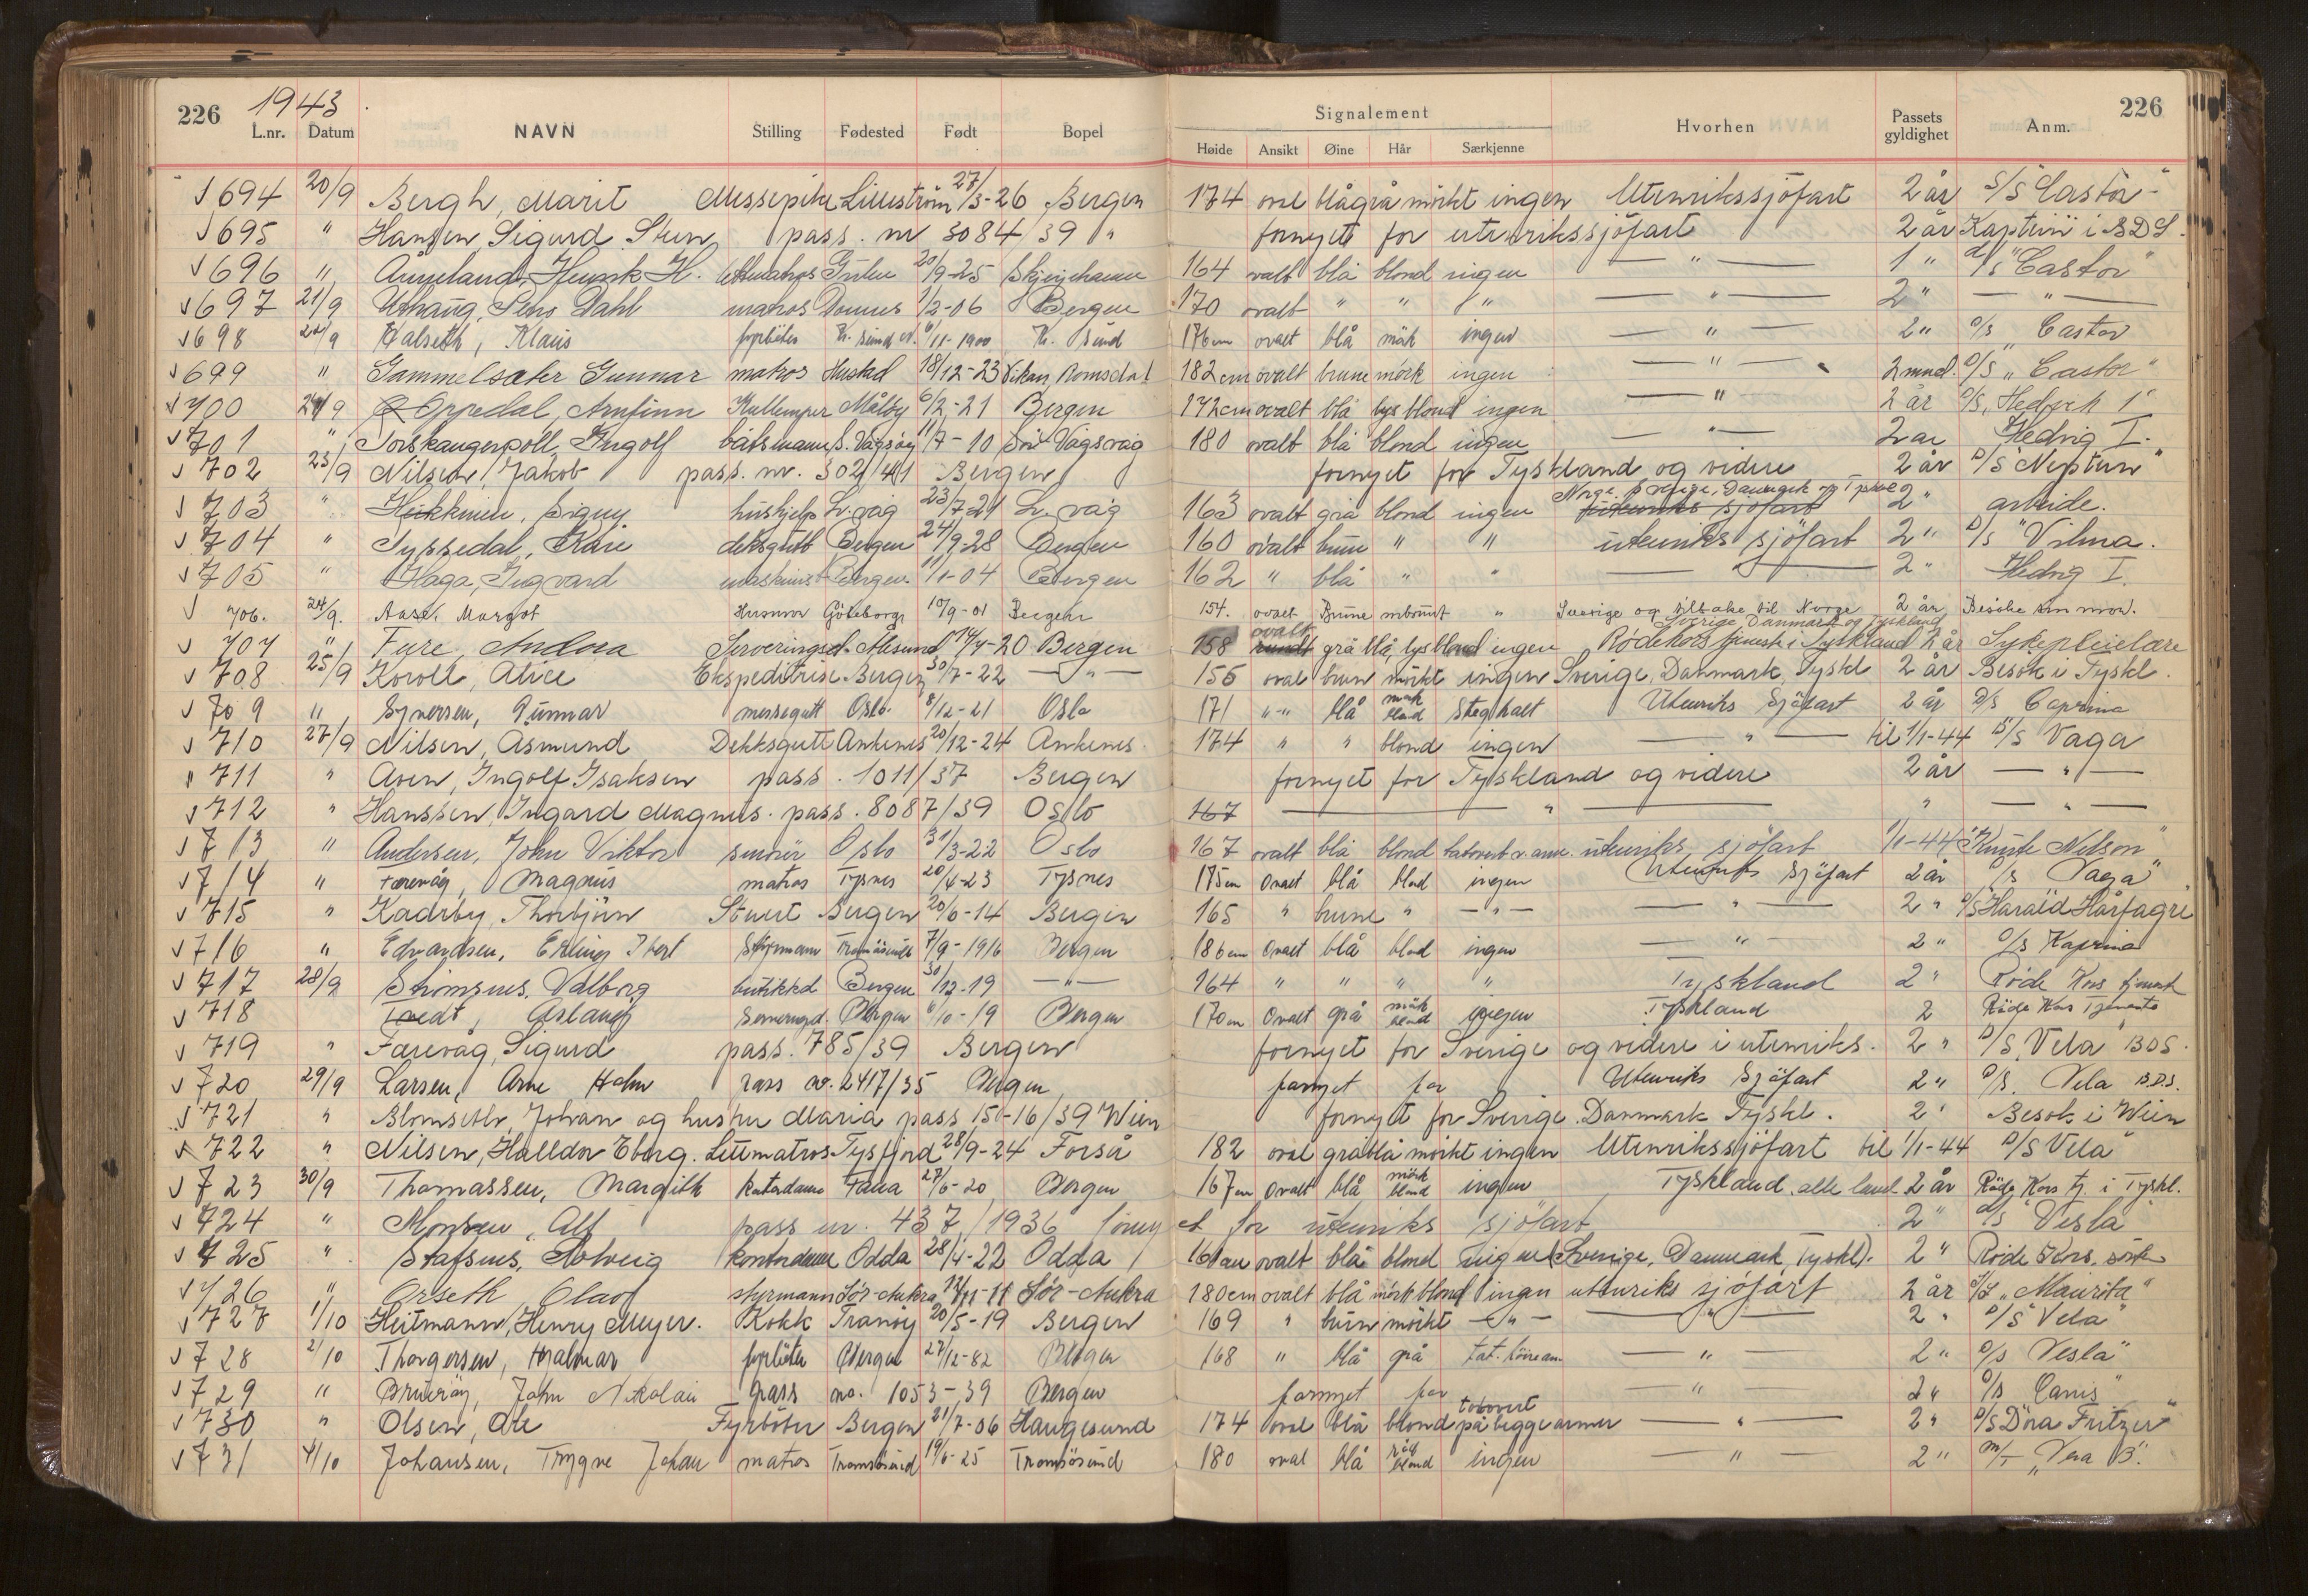 226 1943 226
Signalement
L.nr. Datum NAVN Stilling Fødested Født Bopel Høide Ansikt Øine Hår Særkjenne Hvorhen Passets gyldighet Anm.
694 20/9 Bergh, Marit Messepike Lilleström 27/3-26 Bergen 174 oval blågrå mörkt ingen Utenrikssjöfart 2 år S/S "Castor"
695 " Hansen, Sigurd Sten pass. nr 3084/39 " fornyet for utenrikssjöfart 2 år i BDS.
696 " Henrik H. Gulen 20/9-25 164 ovalt blå blond ingen — " — 1 " d/s "Castor"
697 21/9 Dahl matros 1/2-06 Bergen 170 ovalt " " " — " — 2 " — " —
698 22/9 Halseth, Klaus fyrböter Kr. sund N. 6/11-1900 Kr. sund 176 cm ovalt blå mörk ingen — " — 2 " D/s "Castor
699 " Gammelsæter Gunnar matros Hustad 18/12-23 Vikan, Romsdal 182 cm ovalt brune mörk ingen — " — 2 mnd. D/s "Castor"
700 24/9 Oppedal, Arnfinn Kullemper Måløy 6/2-21 Bergen 172 cm ovalt blå lys blond ingen — " — 2 år D/s
701 " Torskangerpoll, Ingolf båtsmann S. Vågsøy 11/7-10 Sör Vågsvåg 180 ovalt blå blond ingen — " — 2 år Hedvig I.
702 23/9 Nilsen, Jakob pass. nr. 302/41 Bergen fornyet for Tyskland og videre 2 år D/S "Neptun"
703 " Heikkinen, Signy hushjelp L. våg 23/7-21 L. våg 163 ovalt grå blond ingen Norge, Sverige, Danmark og utenriks sjöfart 2 " arbeide.
704 " Tyssedal, Kåre dekksgutt Bergen 24/9-28 Bergen 160 ovalt brun " " utenriks sjöfart 2 " D/s "Vilma.
705 " Haga, Ingvard maskinist Bergen 11/1-04 Bergen 162 " blå " " — " — 2 " Hedvig I.
706. 24/9. Aase, Margot Husmor Göteborg 10/9-01 Bergen 154. ovalt Brune " Sverige og tilbake til Norge 2 år Besöke sin mor.
707 " Fure, Andrea Serveringsd. Ålesund 14/4-20 Bergen 158 rundt ovalt grå blå, lys blond ingen Rödekorstjeneste i Tyskland Sverige, Danmark og Tyskland 2 år Sykepleielære
708 25/9 Koroll, Alice Ekspeditrise Bergen 30/7-22 — " — 156 oval brun mörkt ingen Sverige, Danmark, Tyskl 2 år Besök i Tyskl.
709 " Syversen, Gunnar messegutt Oslo. 8/12-21 Oslo 171 " - " blå mörk blond Utenriks Sjöfart 2 år D/S Caprina
710 27/9 Nilsen, Asmund Dekksgutt Ankenes 20/12-24 Ankenes. 174 " " blond ingen — " — til 1/1-44 D/S Vaga
711 " Aven, Ingolf Isaksen pass. 1011/37 Bergen fornyet for Tyskland og videre 2 år — " —
712 " Hanssen, Ingard Magnus. pass. 8087/39 Oslo 167 — " — " — " —
713 " Andersen, John Viktor smörer Oslo 31/3-22 Oslo 167 ovalt blå blond tatovert v. arm. utenriks sjöfart 1/1-44 "Knute Nelson"
714 " Færevåg, Magnus matros Tysnes 20/4-23 Tysnes 175 cm Ovalt blå blond ingen Utenriks Sjöfart 2 år D/s Vaga"
715 " Kaarby, Thorbjörn Stuert Bergen 20/6-14 Bergen 165 " brune " — " — — " — 2 " D/S "Harald Hårfagre"
716 " Edvardsen, Erling Styrmann Tromösund 7/9-1916 Bergen 186 cm Ovalt blå blond ingen — " — 2 " D/s Kaprina
717 28/9 Strömsnes, Valborg butikkd Bergen 30/12-19 — " — 164 " " " " Tyskland 2 " Röde Kors tjeneste
718 Tvedt, Aslaug Serveringsd. Bergen 6/10-19 Bergen 170 cm Ovalt grå mörk blond ingen Tyskland 2 Röde Kors Tjeneste
719 " Færevåg, Sigurd pass. 785/39 Bergen fornyet for Sverige og videre i utenriks. 2 " D/S "Vela" BDS.
720 29/9 Larsen, Arne Holm Pass nr. 2417/35 Bergen fornyet for Utenriks Sjöfart 2 " D/S. Vela B.D.S.
721 " Blomseth, Johan og hustru Maria pass 150-16/39 Wien fornyet for Sverige. Danmark Tyskl. 2 " Besök i Wien
722 " Nilsen, Halldor Eberg. Lettmatros Tysfjord 28/9-24 Forså 182 oval gråblå mörkt ingen Utenrikssjöfart til 1/1-44 D/S Vela"
723 30/9 Thomassen, Margith kontordame Fana 27/6-20 Bergen 167 cm Ovalt blå mörk blond ingen Tyskland, alle land 2 år Röde Kors tj. i Tyskl.
724 " Monsen, Alf pass nr. 437/1936 fornyet for utenriks sjöfart 2 " d/s "Vesla"
725 " Stafsnes, Solveig kontordame Odda 28/4-22 Odda 161 cm ovalt blå blond ingen (Sverige, Danmark, Tyskl). 2 " Röde Kors. söst.
726 " Orseth, Olav styrmann Sör-Aukra 12/11-11 Sör-Aukra 180 cm ovalt blå mörk blond ingen utenriks sjöfart 2 år "Maurita"
727 1/10 Heitmann, Henry Meyer. Kokk Tranöy 20/5-19 Bergen 169 " brun mörkt — " — — " — 2 " D/S "Vela"
728 2/10 Thorgersen, Hjalmar fyrböter Bergen 27/12-82 Bergen 168 " blå grå tat. höire arm. — " — 2 " D/s Vesla"
729 " Brueröy, John Nikolai pass no. 1053-39 Bergen fornyet for — " — 2 " D/S Canis"
730 " Olsen, Ole Fyrböter Bergen 21/7-06 Haugesund 174 oval blå blond tatovert på begge armer — " — 2 " D/S "Dora Fritzen"
731 4/10 Johansen, Trygve Johan matros Tromsösund 19/6-25 Tromsösund 180 oval blå blond ingen — " — 2 " M/T "Vera B".